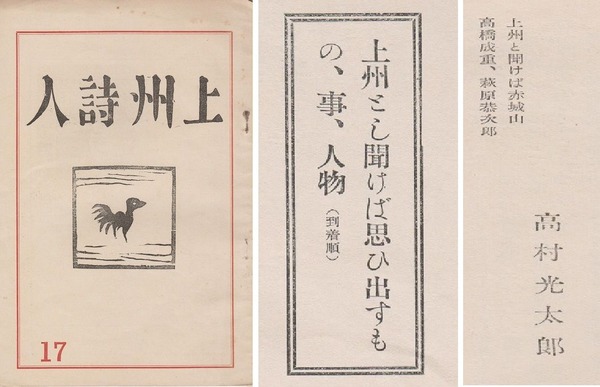 上州詩人
17
上州とし聞けば思ひ出すも
の、事、人物(到着順)
上州と聞けば赤城山
高橋成重、萩原恭次郎
高村光太郎